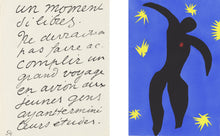 un moment
di libres.
Ne devrait-on
pas faire ac-
complir un
grand voyage
en avion aux
jeunes gens
ayant terminé
leurs études.
54